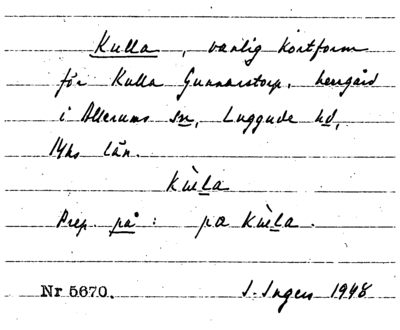 Kulla, vanlig kortform
för Kulla Gunnarstorp, herrgård
i Allerums sn, Luggude hd,
Mhs län.
Kùlla
Prep. på: pα Kùlla.
Nr 5670. I. Ingers 1948